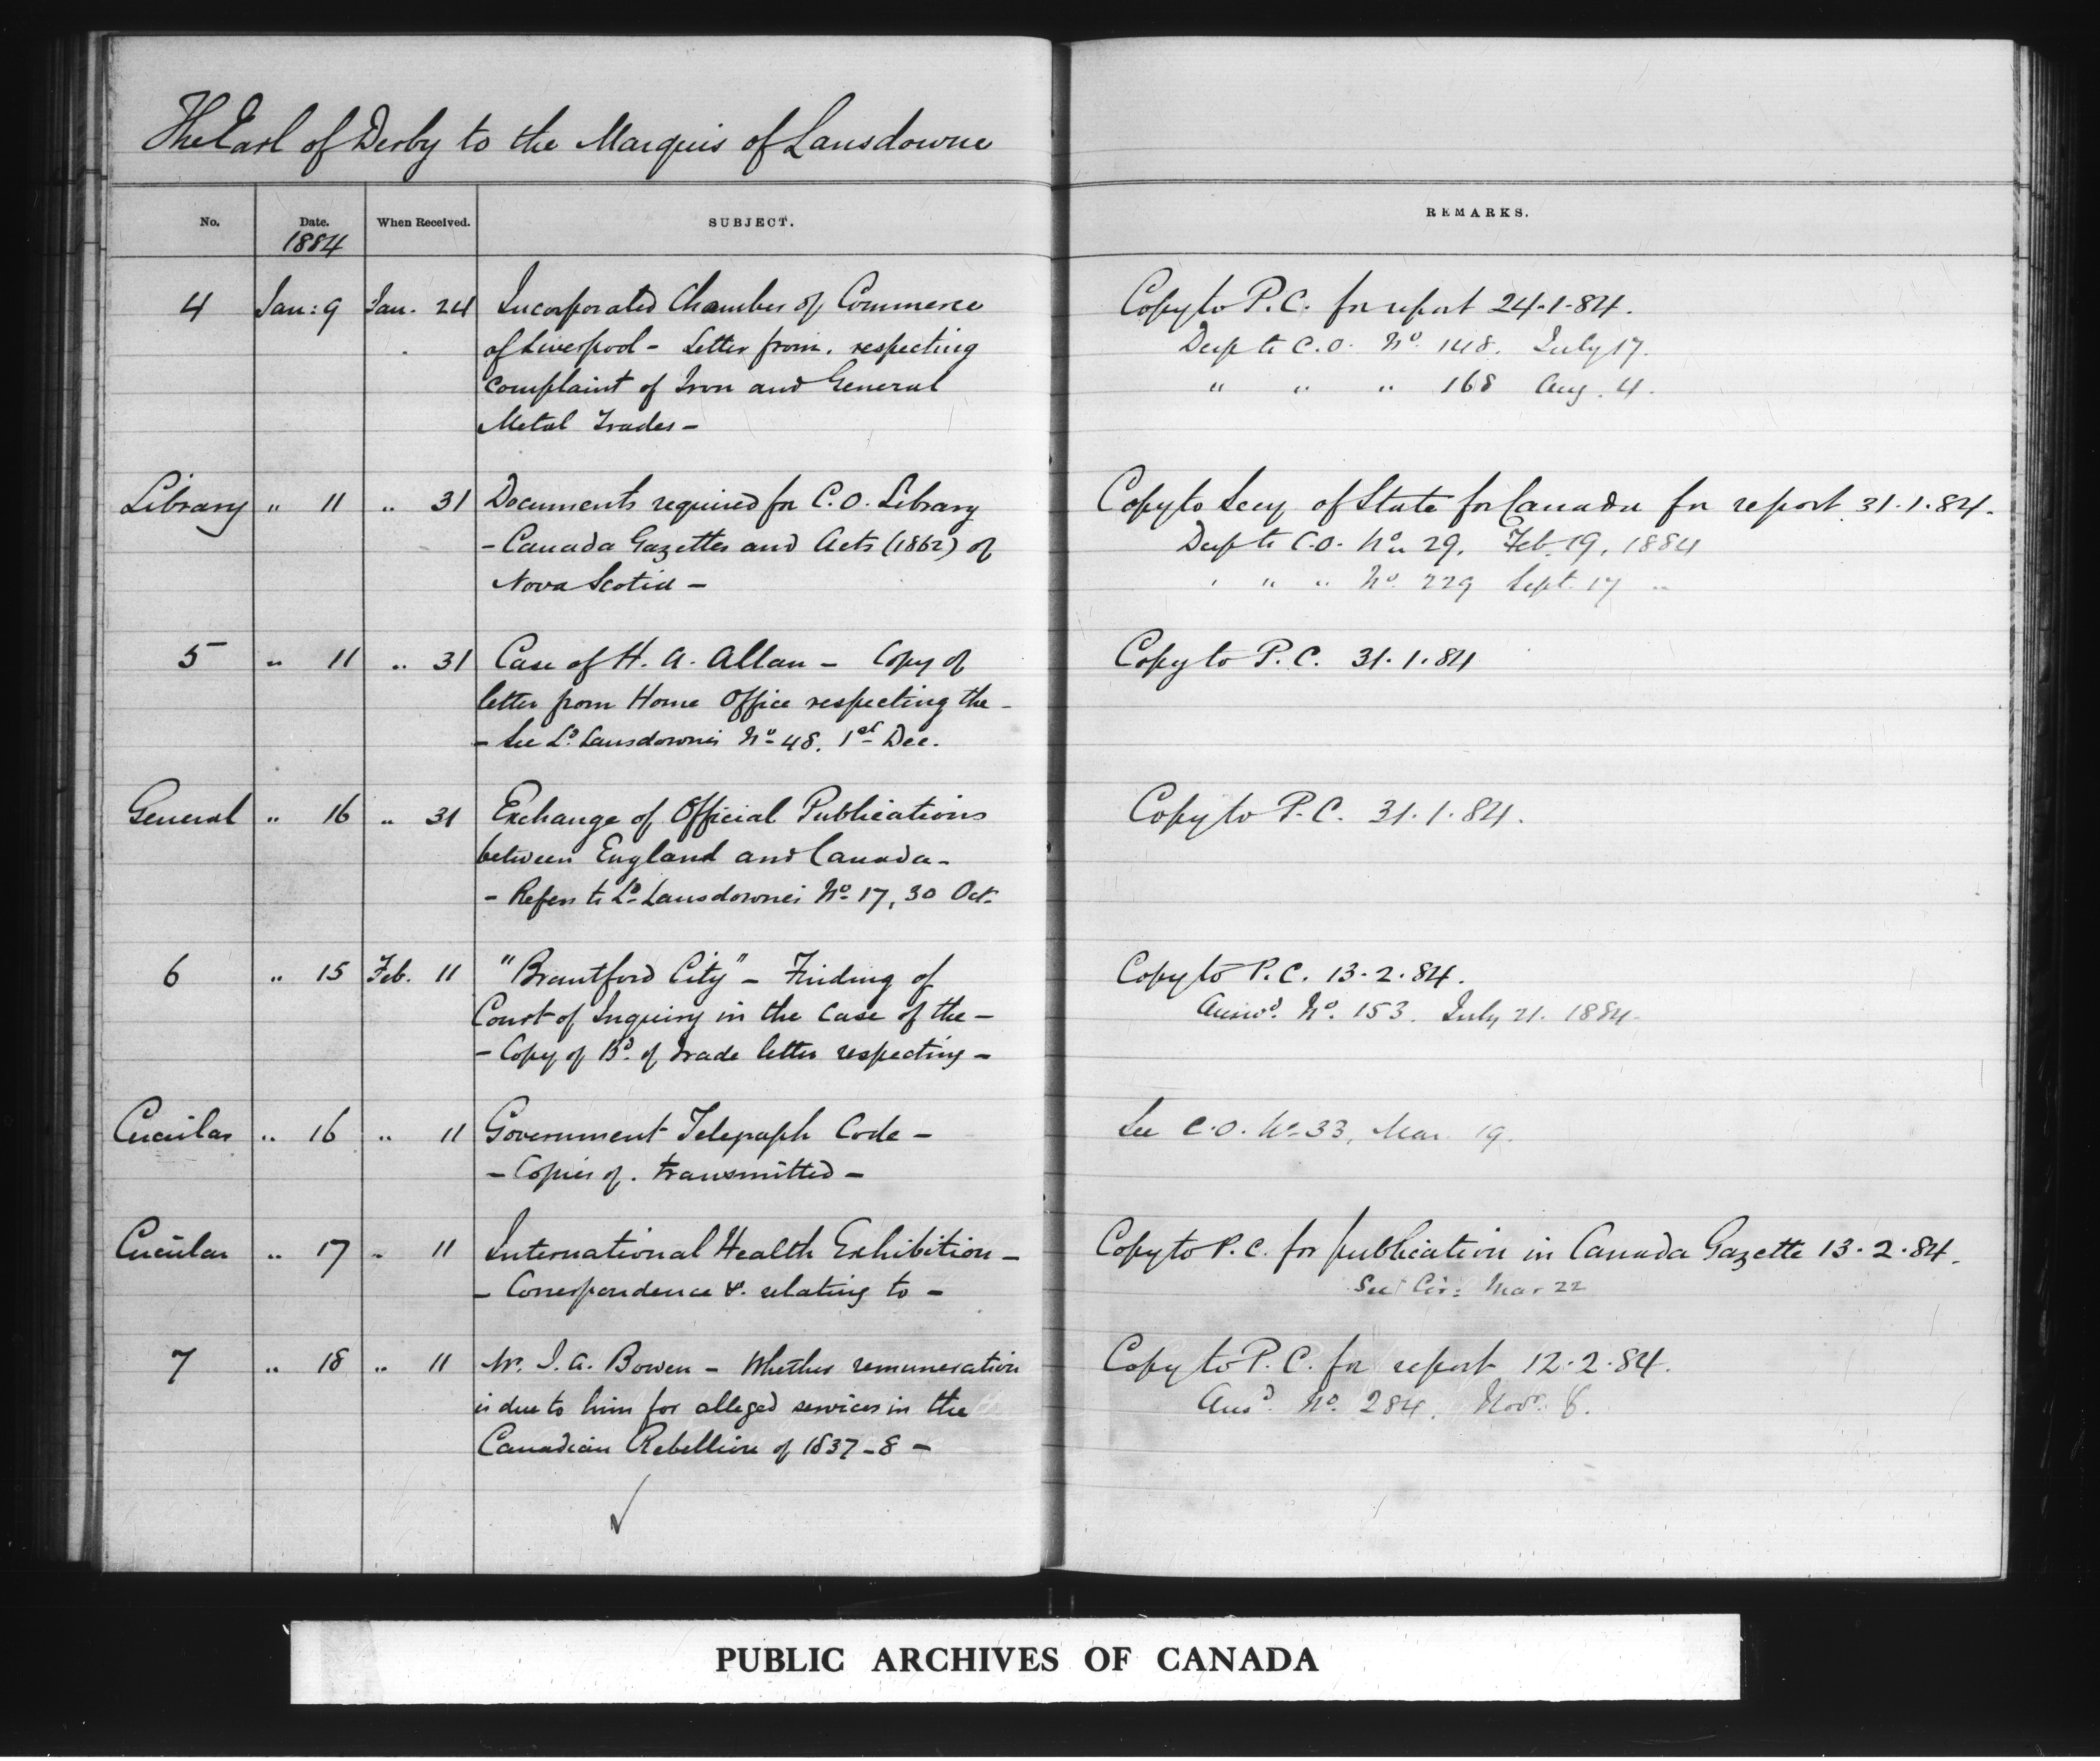 The Earl of Derby to the Marquis of Lansdowne
No. Date. When Received. SUBJECT. REMARKS.
1884
4 Jan: 9 Jan. 24 Incorporated Chamber of Commerce Copy to P.C. for report 24.1.84.
of Liverpool - Letter from, respecting Desp to C.O. No. 148. July 17.
complaint of Iron and General " " " 168 Aug. 4.
Metal Trades -
Library " 11 " 31 Documents required for C.O. Library Copy to Secy of State for Canada for report 31.1.84.
- Canada Gazettes and Acts (1862) of Desp to C.O. No. 29. Feb. 19, 1884
Nova Scotia - " " " No. 229 Sept. 17 "
5 " 11 " 31 Case of H. A. Allan - Copy of Copy to P.C. 31.1.84
letter from Home Office respecting the -
- See Ld. Lansdowne's No. 48. 1st Dec.
General " 16 " 31 Exchange of Official Publications Copy to P.C. 31.1.84.
between England and Canada -
- Refers to Ld. Lansdowne's No. 17, 30 Oct.
6 " 15 Feb. 11 "Brantford City" - Finding of Copy to P.C. 13.2.84.
Court of Inquiry in the Case of the - Answd. No. 153. July 21. 1884.
- Copy of Bd. of Trade letter respecting -
Circular " 16 " 11 Government Telegraph Code - See C.O. No. 33, Mar. 19.
- Copies of. transmitted -
Circular " 17 " 11 International Health Exhibition - Copy to P.C. for publication in Canada Gazette 13.2.84.
- Correspondence &c. relating to - See Cir: Mar 22
7 " 18 " 11 Mr. J. A. Bowen - Whether remuneration Copy to P.C. for report 12.2.84.
is due to him for alleged services in the Ansd. No. 284. Novr. 8.
Canadian Rebellion of 1837-8 -
PUBLIC ARCHIVES OF CANADA